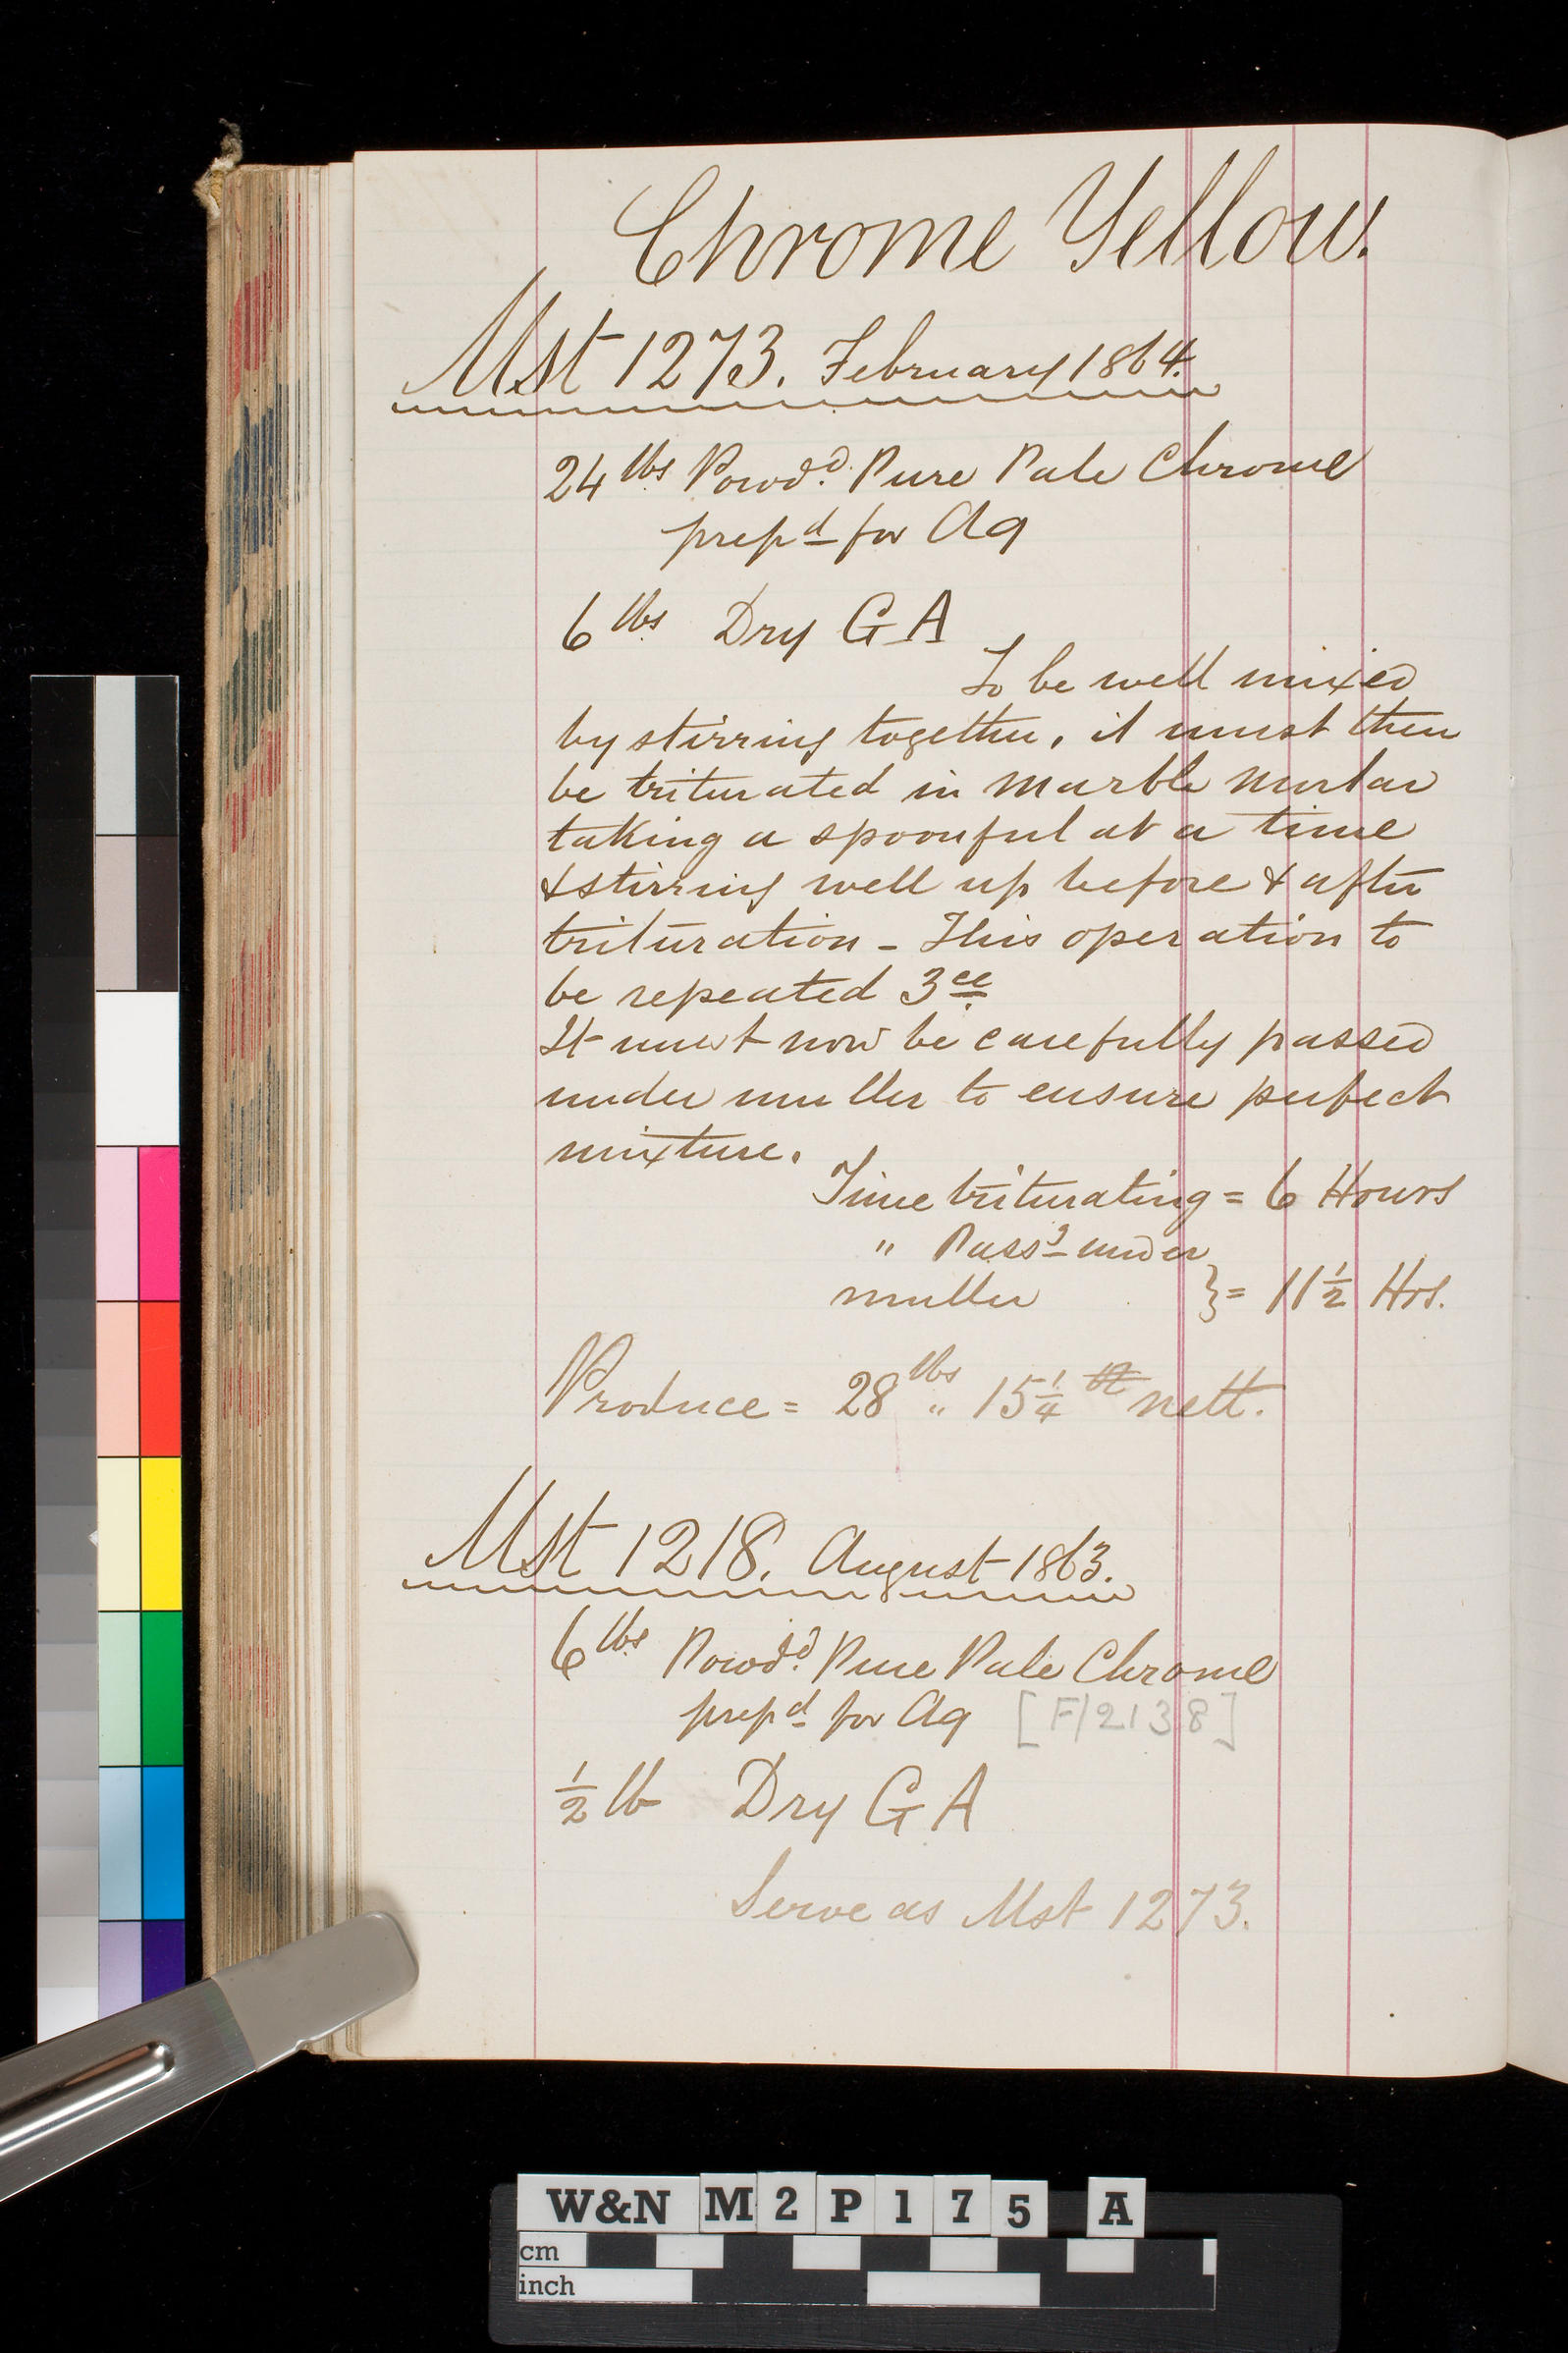 Chrome Yellow.
Mst 1273. February 1864.
24 lbs Powdd. Pure Pale Chrome
prepd for Aq
6 lbs Dry G A
To be well mixed
by stirring together, it must then
be triturated in Marble Mortar
taking a spoonful at a time
& stirring well up before & after
trituration - This operation to
be repeated 3ce
It must now be carefully passed
under muller to ensure perfect
mixture.
Time triturating = 6 Hours
" Passg under
muller } = 11 1/2 Hrs.
Produce = 28 lbs " 15 1/4 nett.
Mst 1218. August 1863.
6 lbs Powdd. Pure Pale Chrome
prepd for Aq [F/2138]
1/2 lb Dry G A
Serve as Mst 1273.
W&N M2P175 A
cm
inch